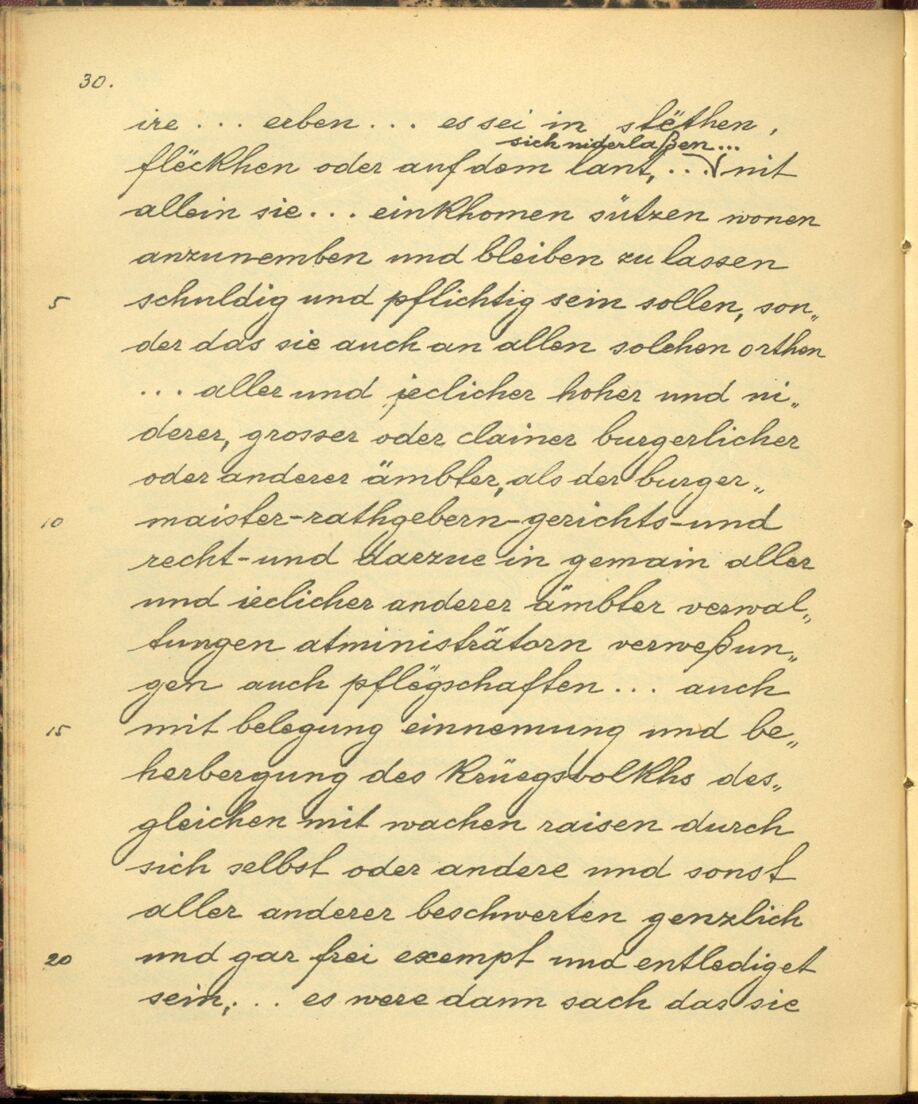 30.
ire ... erben ... es sei in stëthen,
sich niderlaßen...
flëckhen oder auf dem lant, ... nit
allein sie ... einkhomen sützen wonen
anzunemben und bleiben zu lassen
5 schuldig und pflichtig sein sollen, son„
der das sie auch an allen solchen orthen
... aller und ieclicher hoher und ni„
derer, grosser oder clainer burgerlicher
oder anderer ämbter, als der burger„
10 maister-rathgebern-gerichts-und
recht-und darzue in gemain aller
und ieclicher anderer ämbter verwal„
tungen atministrätorn verweßun„
gen auch pflëgschaften ... auch
15 mit belegung einnemung und be„
herbergung des krüegsvolkhs des„
gleichen mit wachen raisen durch
sich selbst oder andere und sonst
aller anderer beschwerten genzlich
20 und gar frei exempt und entlediget
sein; ... es were dann sach das sie